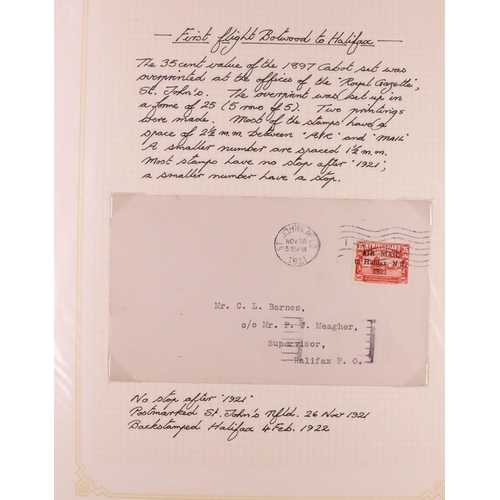 First flight Botwood to Halifax
The 35 cent value of the 1897 Cabot set was
overprinted at the offices of the "Royal Gazette",
St. John's. The overprint was set up in
a forme of 25 (5 rows of 5). Two printings
were made. Most of the stamps have a
space of 2½ m.m. between "AIR" and "MAIL"
A smaller number are spaced 1½ m.m.
Most stamps have no stop after '1921';
a smaller number have a stop.
ST. JOHN'S NFLD
NOV 20
1921
NEWFOUNDLAND
35 35
AIR MAIL
to Halifax, N.S.
1921
Mr. C. L. Barnes,
c/o Mr. P. J. Meagher,
Supervisor,
Halifax P. O.
No stop after "1921"
Postmarked St. John's Nfld. 26 Nov 1921
Backstamped Halifax 4 Feb. 1922